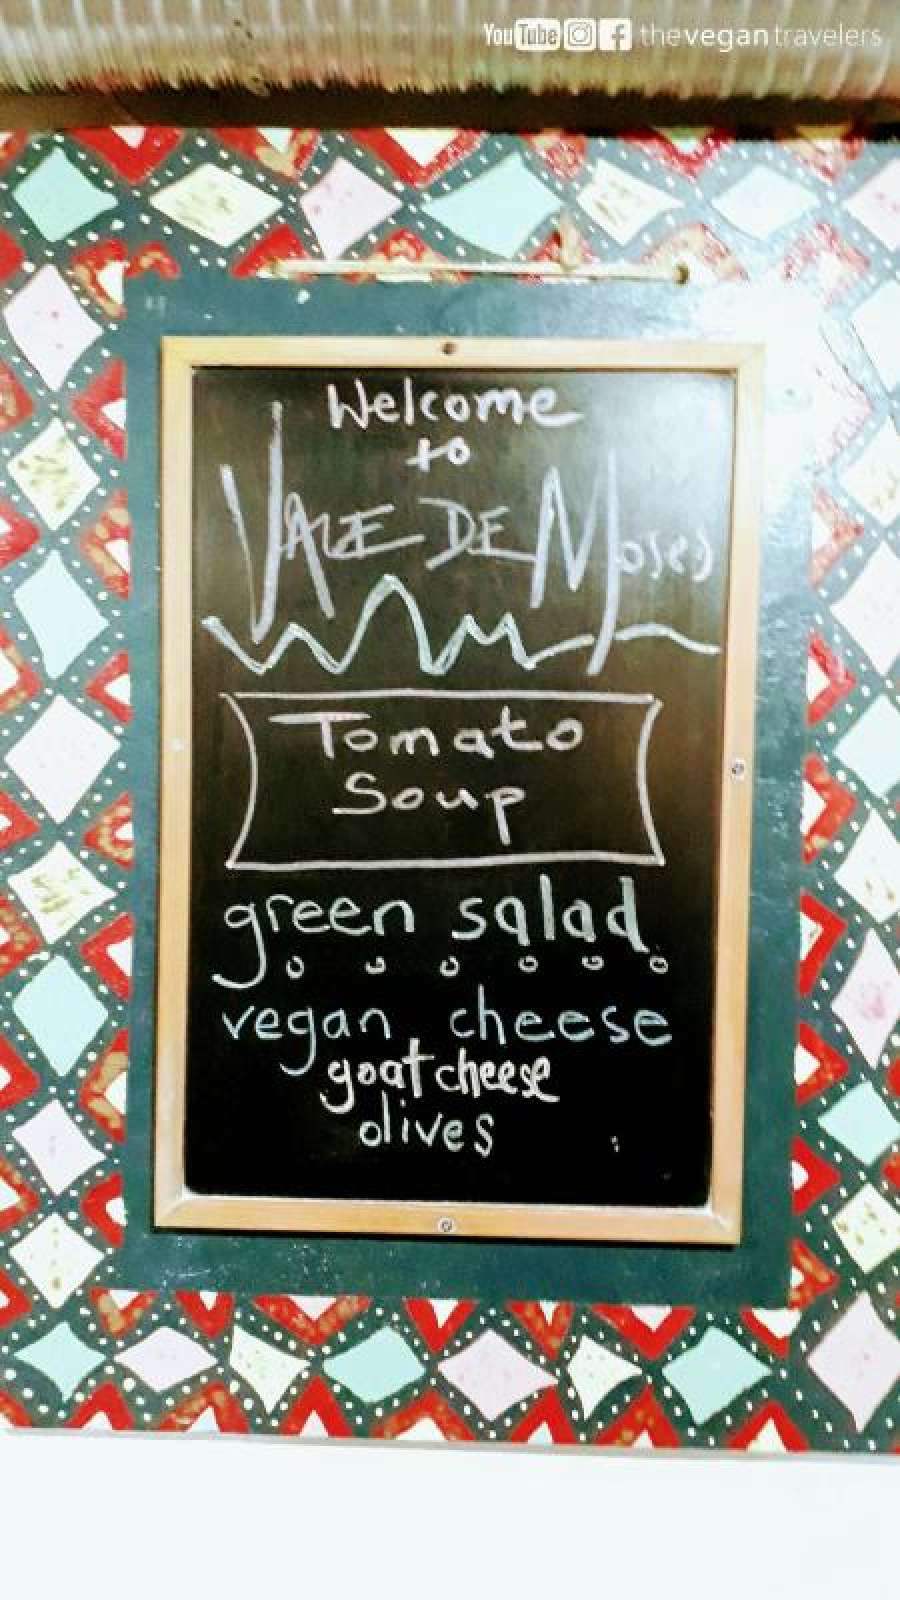 YouTube thevegantravelers
Welcome
to
VALE DE Moses
Tomato
Soup
green salad
vegan cheese
goat cheese
olives